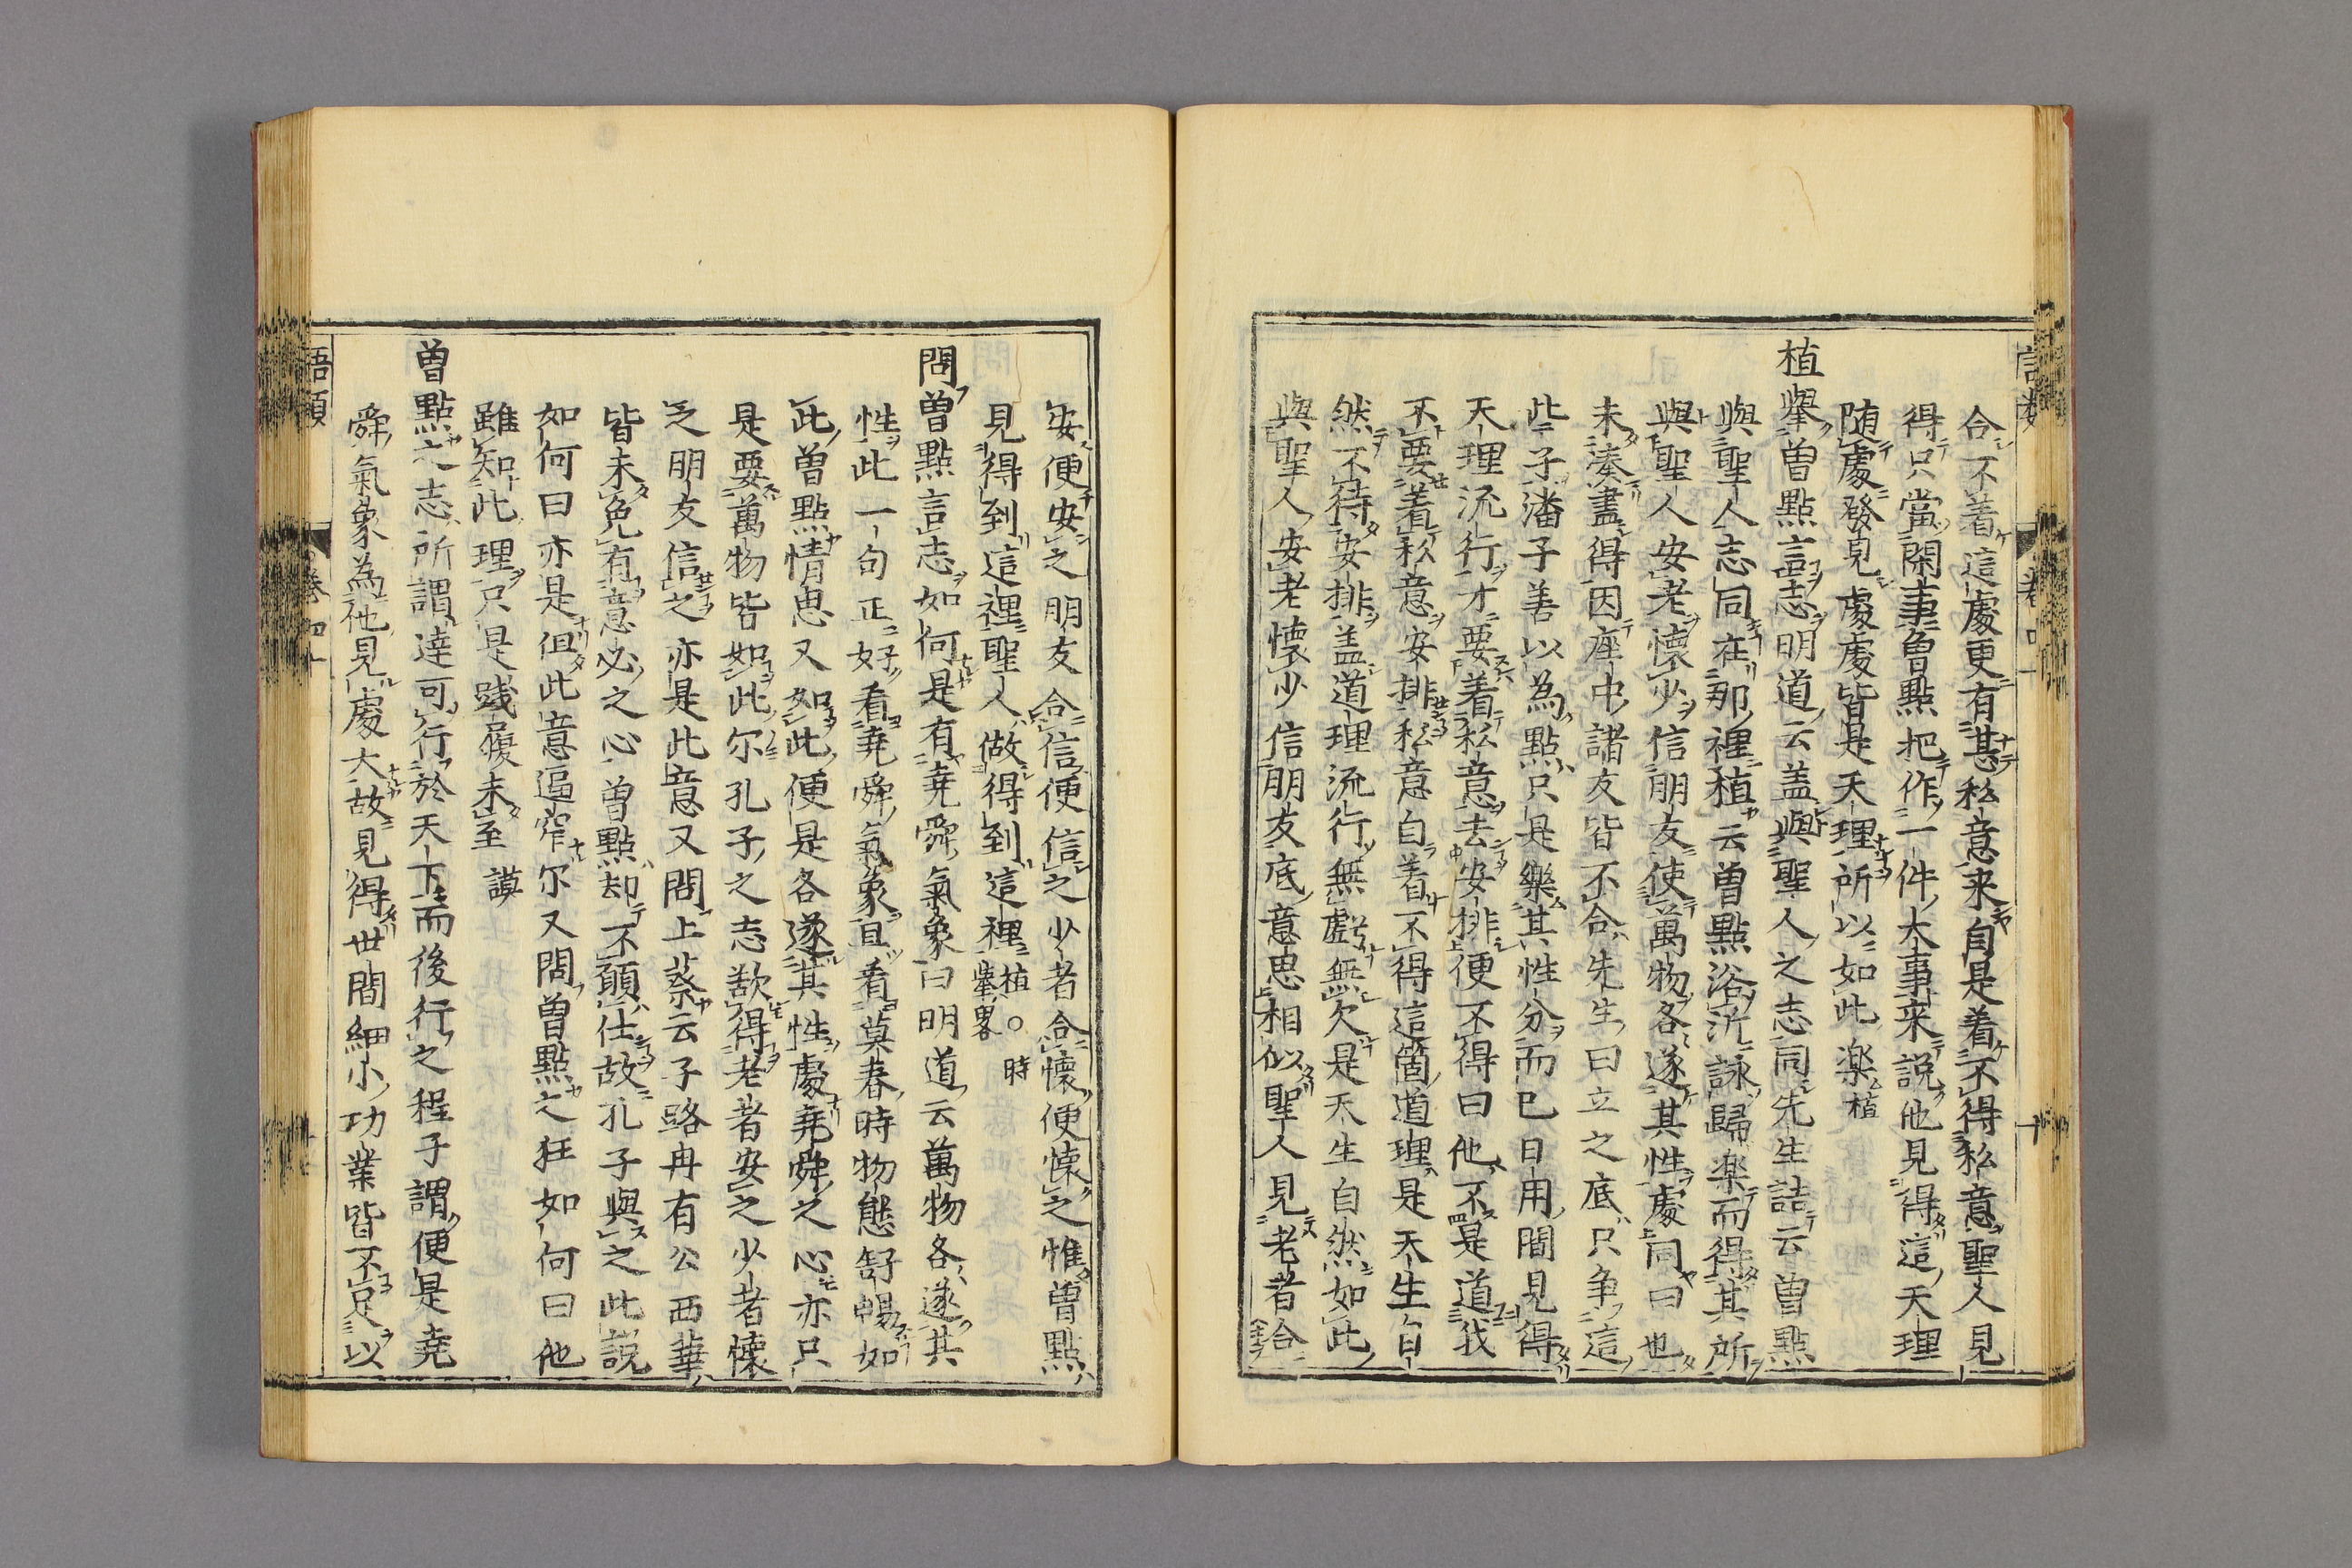 合不着這處更有甚私意来自是着不得私意聖人見
得只當閑事曾點把作一件大事来說他見得這天理
随處發見處處皆是天理所以如此楽植
植舉曾點言志明道云盖與聖人之志同先生詰云曽點
與聖人志同在那裡植云曽點浴沂詠歸楽而得其所
與聖人安老懐少信朋友使萬物各遂其性處同曰也
未湊盡得因座中諸友皆不合先生曰立之底只争這
些子潘子善以為點只是樂其性分而已日用間見得
天理流行才要着私意去安排便不得曰他不是道我
不要着私意安排私意自着不得這箇道理是天生自
然不待安排盖道理流行無虧無欠是天生自然如此
與聖人安老懐少信朋友底意思相似聖人見老者合
安便安之朋友合信便信之少者合懐便懐之惟曽點
見得到這裡聖人做得到這裡植。時
舉畧
問曽點言志如何是有尭舜氣象曰明道云萬物各遂其
性此一句正好看尭舜氣象且看莫春時物態舒暢如
此曽點情思又如此便是各遂其性處尭舜之心亦只
是要萬物皆如此尔孔子之志欲得老者安之少者懐
之朋友信之亦是此意又問上蔡云子路冉有公西華
皆未免有意必之心曽點却不願仕故孔子與之此說
如何曰亦是但此意逼窄尔又問曽點之狂如何曰他
雖知此理只是踐履未至 謨
曽點之志所謂達可行於天下而後行之程子謂便是尭
舜氣象為他見處大故見得世間細小功業皆不足以
語類 卷四十